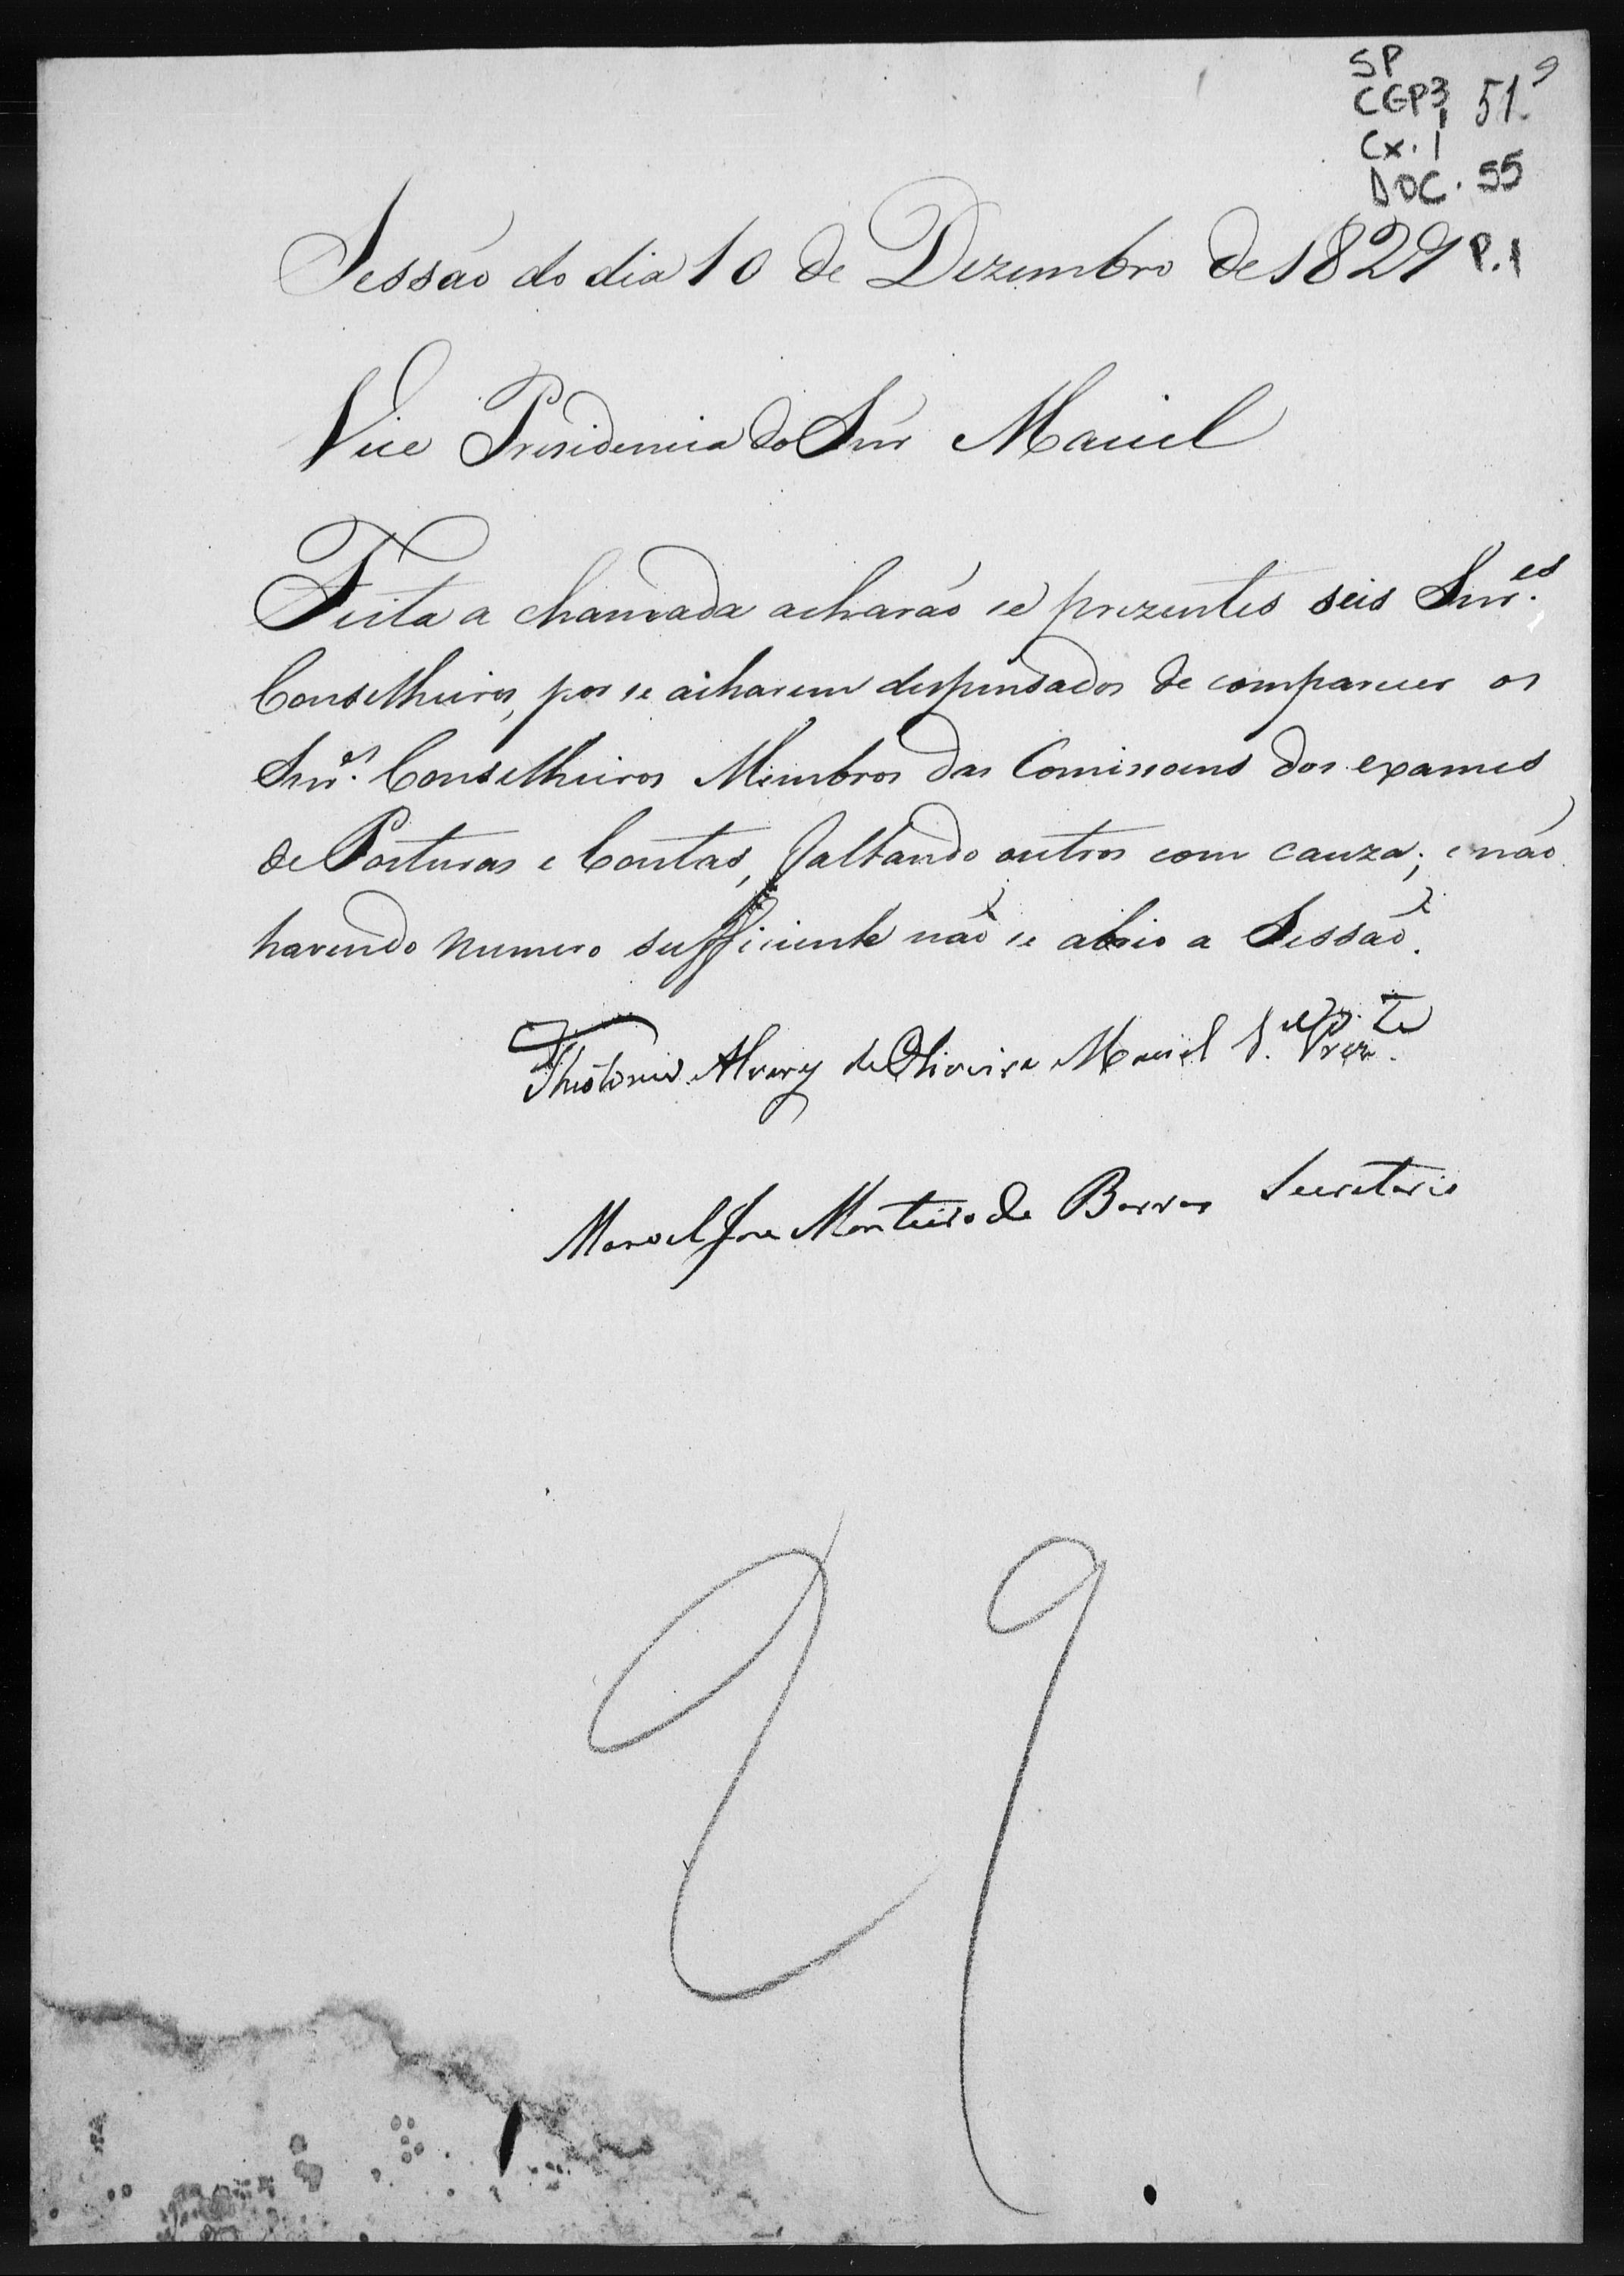 SP
CGP3, 51.º
Cx. 1
DOC. 55
P.1
Sessaõ do dia 10 de Dezembro de 1829
Vice Presidencia do Snr Maciel
Feita a chamada acharaõ se prezentes seis Snr.es
Conselheiros, por se acharem dispensados de comparecer os
Snr.es Conselheiros Membros das Comissoens dos exames
de Posturas e Contas, faltando outros com cauza; e naõ
havendo numero sufficiente naõ se abrio a Sessaõ.
Theotonio Alvares de Oliveira Maciel V.e Prez.te
Manoel Jose Monteiro de Barros Secretario
29